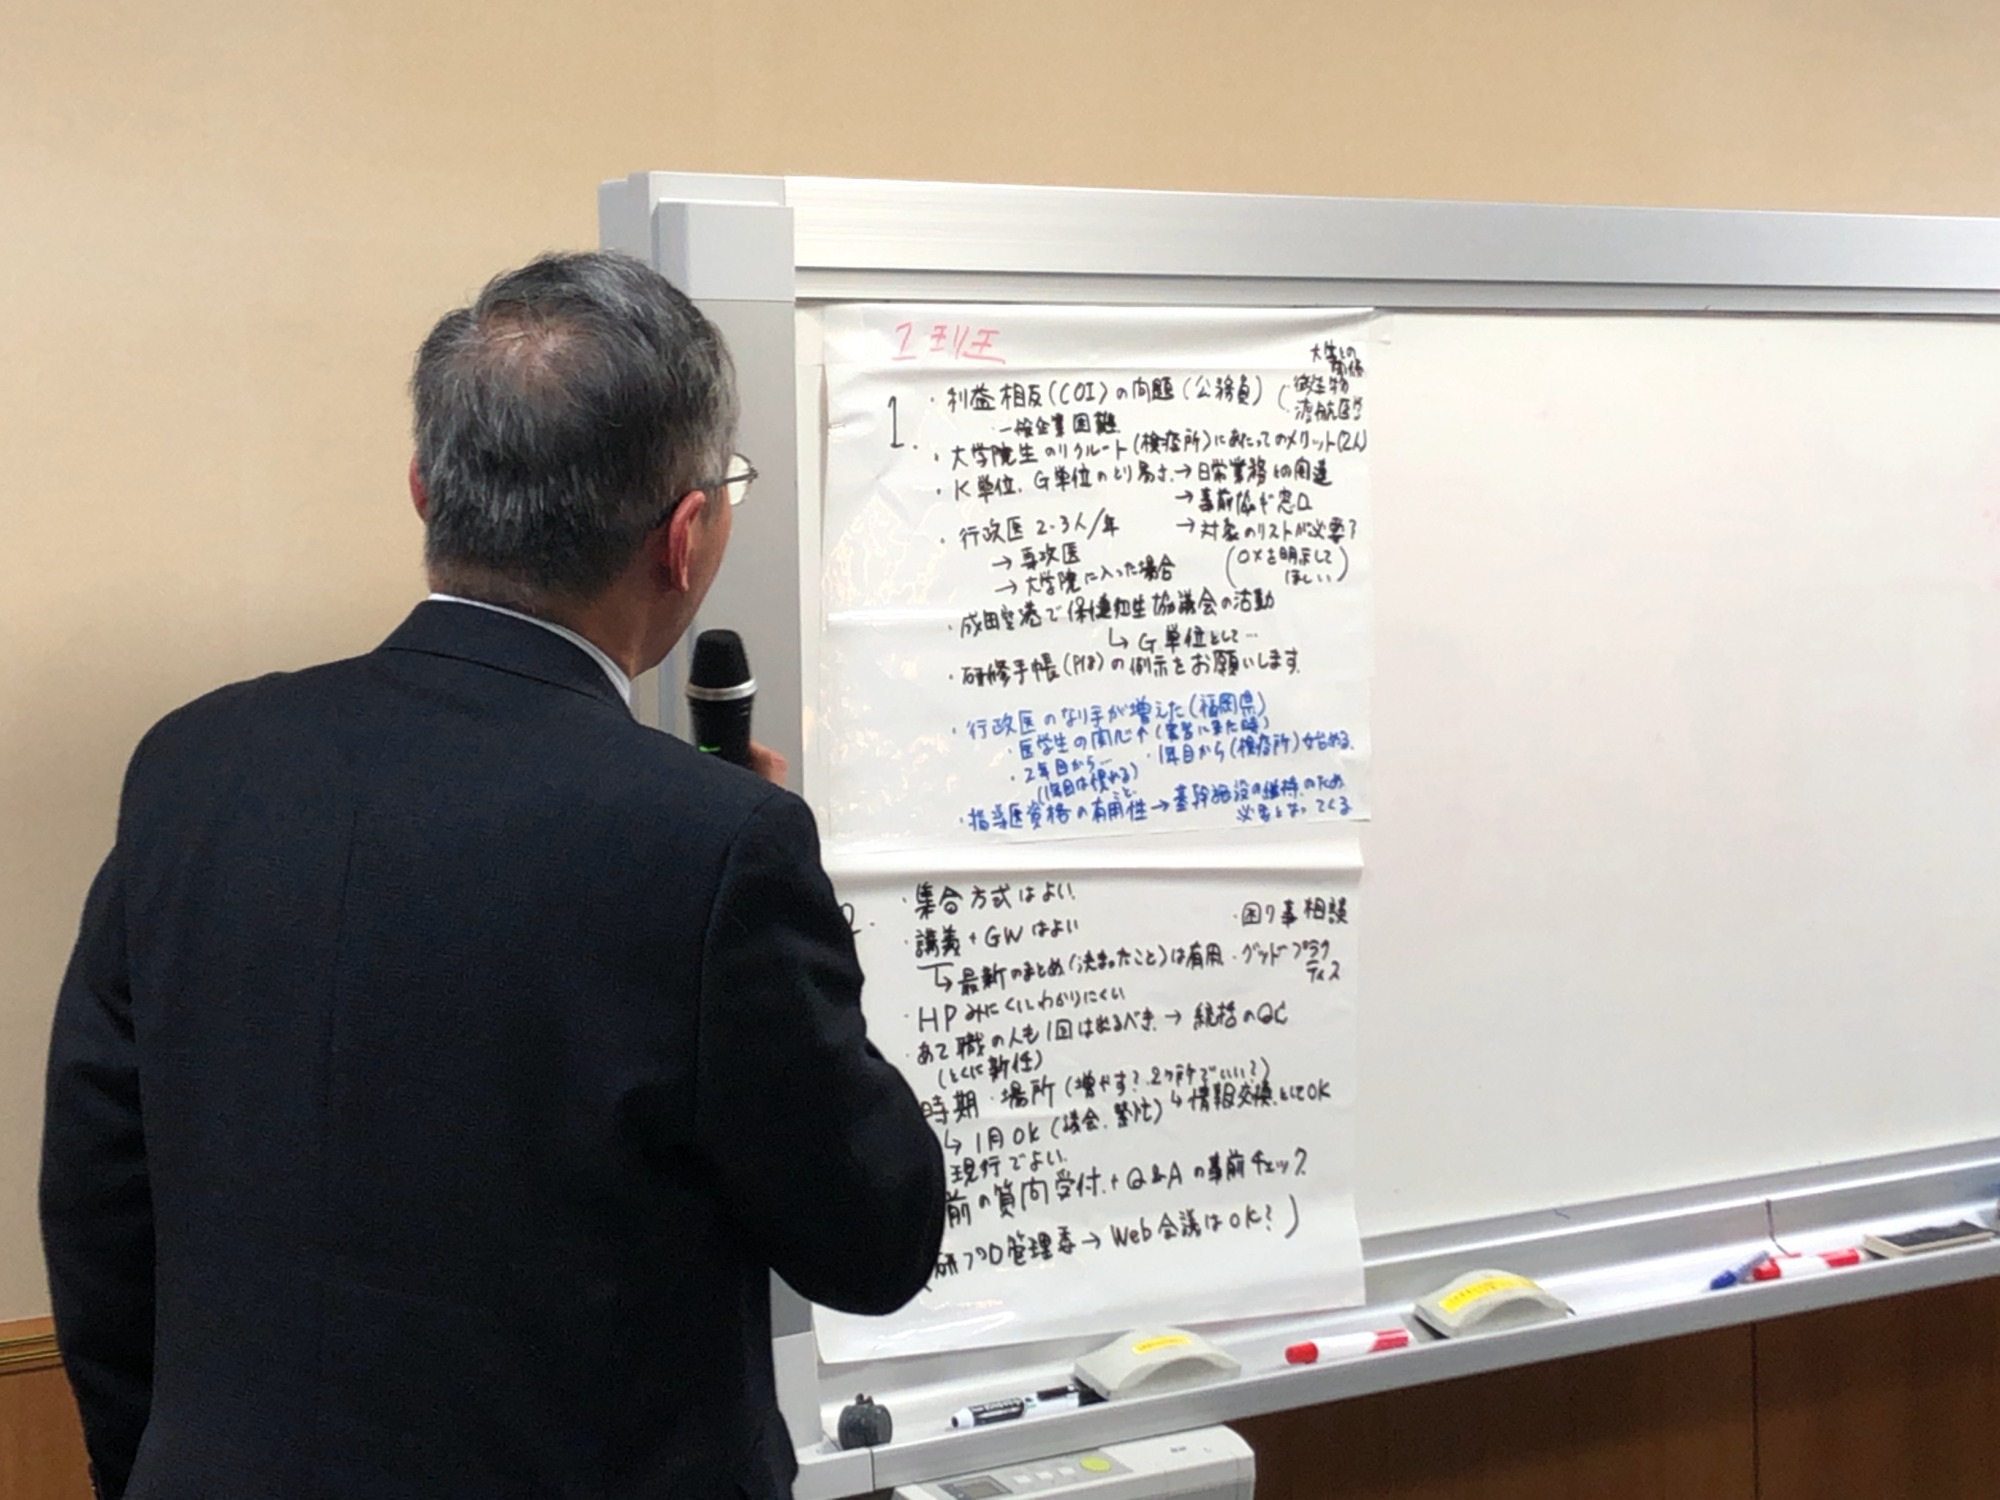 1.
・利益相反(COI)の問題(公務員)
・一般企業困難
微生物
・渡航医学
・大学院生のリクルート(検疫所)にあたってのメリット(2人)
・K単位、G単位のとり易さ→日常業務との関連
→事前協ギ窓口
→対象のリストが必要?
(○×を明示して
ほしい)
・行政医 2-3人/年
→専攻医
→大学院に入った場合
・成田空港で保健衛生協議会の活動
↳G単位として…
・研修手帳(P18)の例示をお願いします。
・行政医のなり手が増えた(福岡県)
・医学生の関心↑(実習に来た時)
・2年目から… ・1年目から(検疫所)始める。
(1年目は慣れる)
こと
・指導医資格の有用性→基幹施設の維持のため
必要となってくる
2.
・集合方式はよい。
・困り事相談
・講義+GWはよい
↳最新のまとめ(決まったこと)は有用・グッドプラク
ティス
・HPみにくいわかりにくい
・あて職の人も1回は出るべき→統括のQC
(とくに新任)
時期・場所(増やす?2ヶ所でいい?)
↳情報交換としてOK
↳1月OK(議会、繁忙)
現行でよい。
前の質問受付+Q&Aの事前チェック
研プロ管理委→Web会議はOK?)